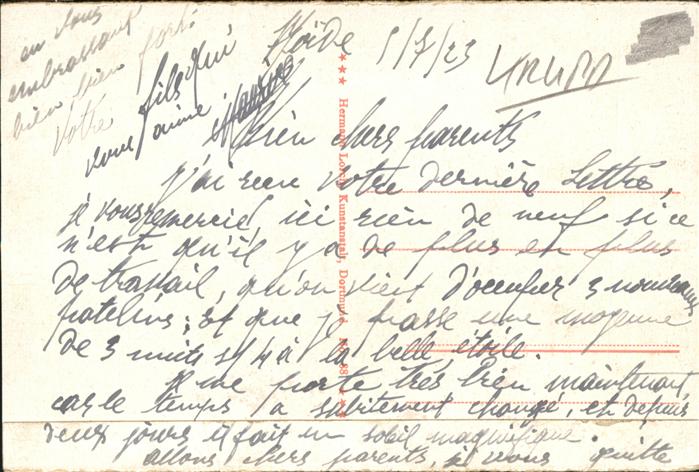 5/7/23
KRUPP
Bien chers parents
J'ai reçu votre dernière lettre,
je vous remercie, ici rien de neuf si ce
n'est qu'il y a de plus en plus
de travail, qu'on vient d'occuper 3 nouveaux
; et que je passe une moyenne
de 3 nuits s/4 à la belle étoile.
Je me porte très bien maintenant
car le temps a subitement changé, et depuis
deux jours il fait un soleil magnifique.
Allons chers parents, je vous quitte
en vous
embrassant
bien bien fort.
Votre
fils qui
vous aime
*** Hermann Lorch, Kunstanstalt, Dortmund